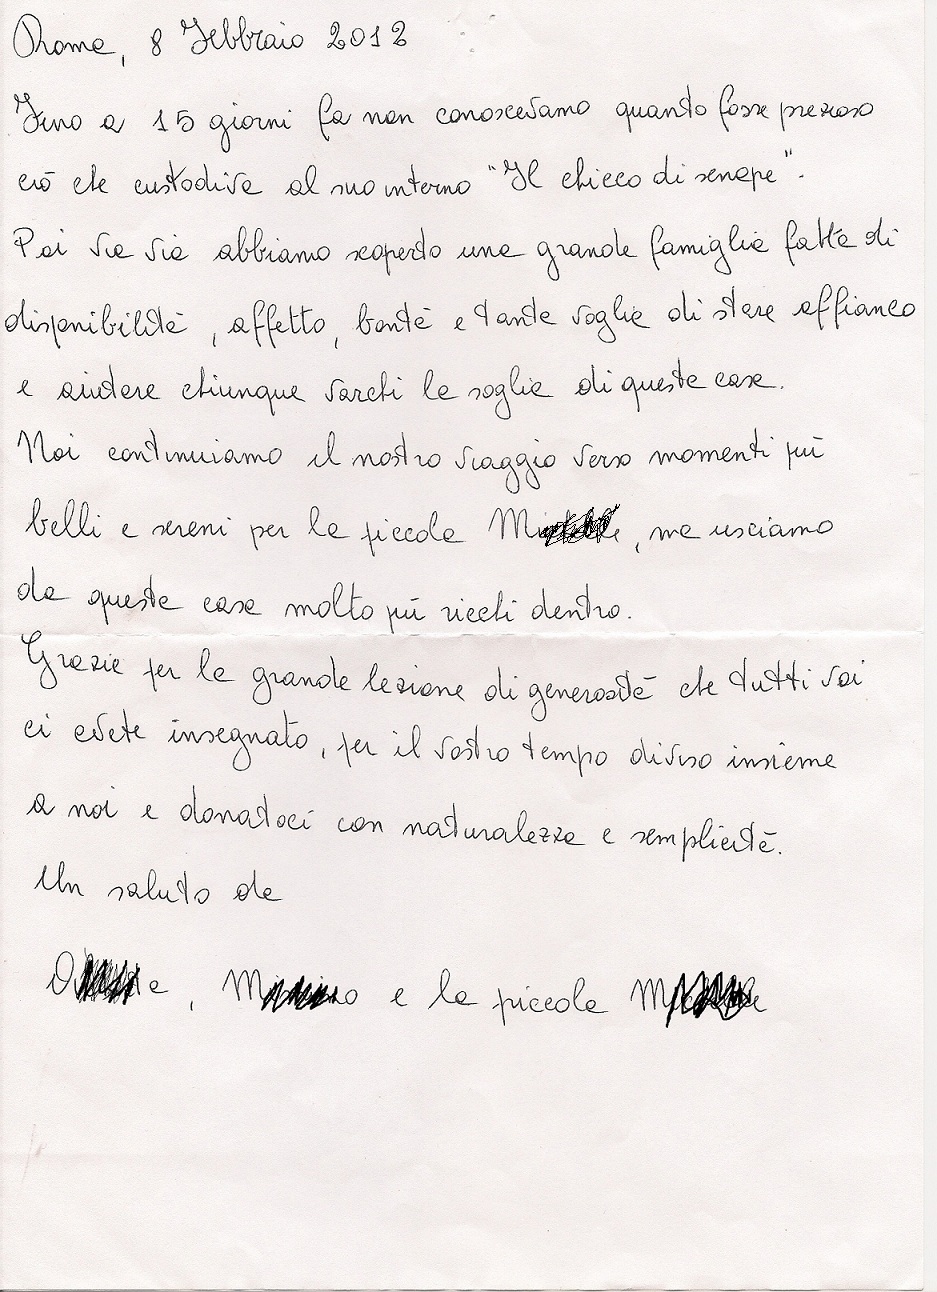 Roma, 8 Febbraio 2012
Fino a 15 giorni fa non conoscevamo quanto fosse prezioso
ciò che custodiva al suo interno "Il chicco di senape".
Poi via via abbiamo scoperto una grande famiglia fatta di
disponibilità, affetto, bontà e tanta voglia di stare affianco
e aiutare chiunque varchi la soglia di questa casa.
Noi continuiamo il nostro viaggio verso momenti più
belli e sereni per la piccola, ma usciamo
da questa casa molto più ricchi dentro.
Grazie per la grande lezione di generosità che tutti voi
ci avete insegnato, per il vostro tempo diviso insieme
a noi e donatoci con naturalezza e semplicità.
Un saluto da
, e la piccola